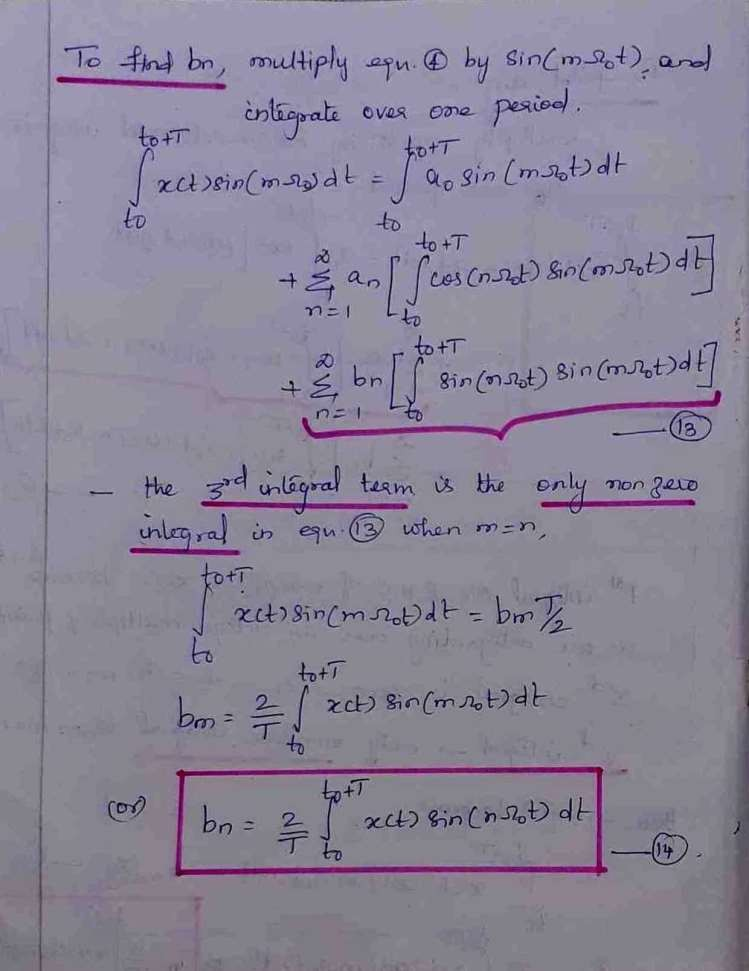 To find bn, multiply equ. ④ by sin(mΩ₀t), and
integrate over one period.
∫_{t0}^{t0+T} x(t) sin(mΩ₀) dt = ∫_{t0}^{t0+T} a₀ sin(mΩ₀t) dt
+ Σ_{n=1}^{∞} an [∫_{t0}^{t0+T} cos(nΩ₀t) sin(mΩ₀t) dt]
+ Σ_{n=1}^{∞} bn [∫_{t0}^{t0+T} sin(nΩ₀t) sin(mΩ₀t) dt]
— ⑬
- the 3rd integral term is the only non zero
integral in equ. ⑬ when m=n,
∫_{t0}^{t0+T} x(t) sin(mΩ₀t) dt = bm T/2
bm = 2/T ∫_{t0}^{t0+T} x(t) sin(mΩ₀t) dt
(or) bn = 2/T ∫_{t0}^{t0+T} x(t) sin(nΩ₀t) dt — ⑭.